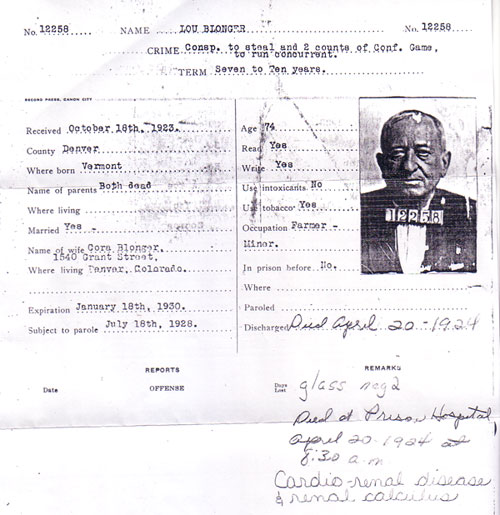 No. 12258 NAME LOU BLONGER No. 12258
CRIME Consp. to steal and 2 counts of Conf. Game,
to run concurrent.
TERM Seven to Ten years.
RECORD PRESS, CANON CITY
Received October 18th, 1923.
County Denver
Where born Vermont
Name of parents Both dead
Where living
Married Yes -
Name of wife Cora Blonger.
1540 Grant Street,
Where living Denver, Colorado.
Expiration January 18th, 1930.
Subject to parole July 18th, 1928.
Age 74
Read Yes
Write Yes
Use intoxicants No
Use tobacco Yes
Occupation Farmer -
Miner.
In prison before No.
Where
Paroled
Discharged Died April 20 - 1924
12258
REPORTS
Date OFFENSE Days Lost
REMARKS
glass neg 2
Died at Prison Hospital
April 20 - 1924 at
8:30 a.m.
Cardio-renal disease
& renal calculus